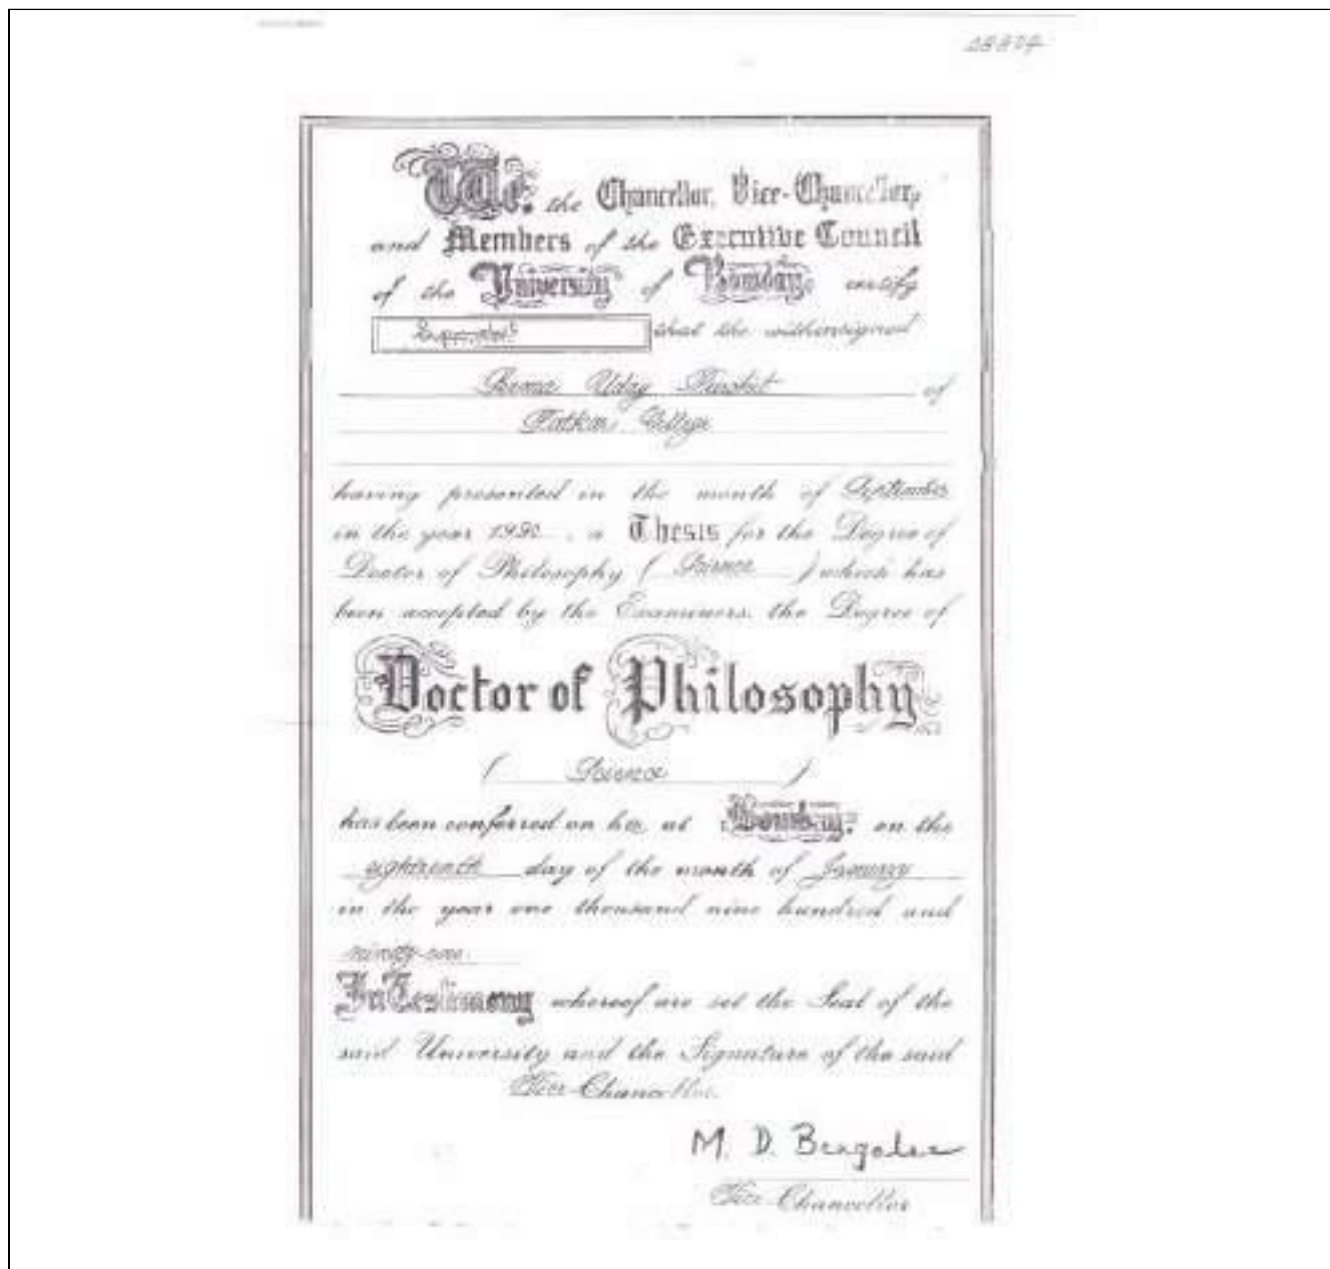 We, the Chancellor, Vice-Chancellor,
and Members of the Executive Council
of the University of Bombay, certify
that the withinsigned
Uday Purohit of
Patkar College
having presented in the month of September
in the year 1990, a Thesis for the Degree of
Doctor of Philosophy ( Science ) which has
been accepted by the Examiners, the Degree of
Doctor of Philosophy
( Science )
has been conferred on her at Bombay, on the
eighteenth day of the month of January
in the year one thousand nine hundred and
ninety-one.
In Testimony whereof are set the Seal of the
said University and the Signature of the said
Vice-Chancellor.
M. D. Bengalee
Vice-Chancellor